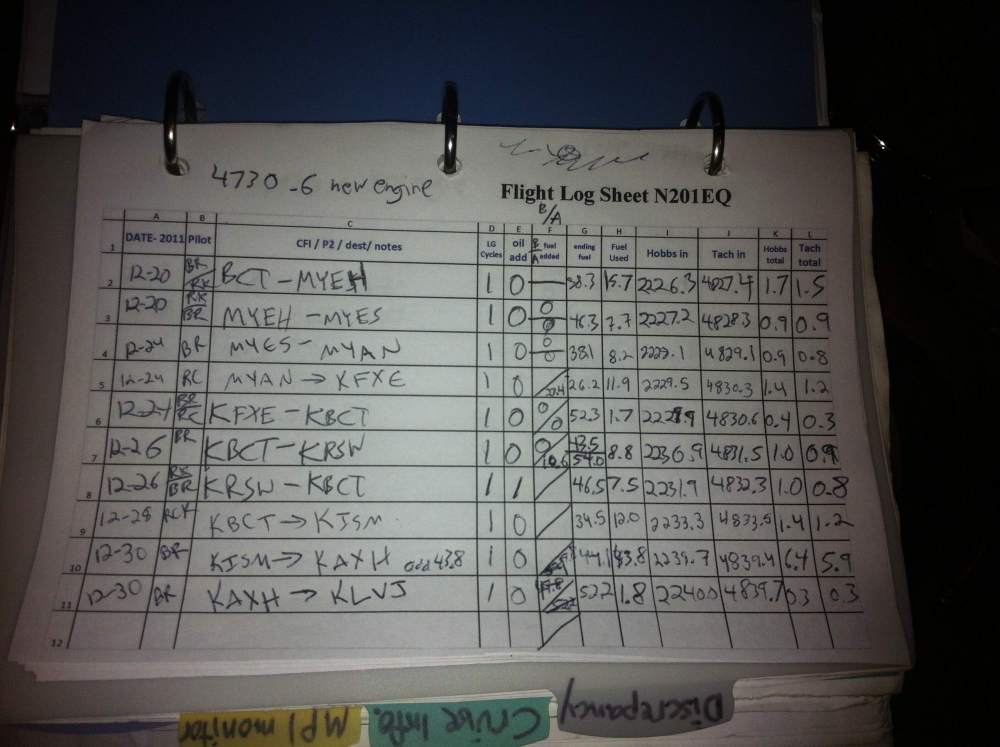 4730 - 6 new engine
Flight Log Sheet N201EQ
B/A
A B C D E F G H I J K L
1 DATE- 2011 Pilot CFI / P2 / dest/ notes LG Cycles oil add B/A fuel added ending fuel Fuel Used Hobbs in Tach in Hobbs total Tach total
2 12-20 BR/RK BCT - MYEH 1 0 — 38.3 15.7 2226.3 4827.4 1.7 1.5
3 12-20 RK/BR MYEH - MYES 1 0 0/0 46.3 7.7 2227.2 4828.3 0.9 0.9
4 12-24 BR MYES - MYAN 1 0 0/0 38.1 8.2 4829.1 0.9 0.8
5 12-24 RC MYAN → KFXE 1 0 26.2 11.9 2229.5 4830.3 1.4 1.2
6 12-24 BR/RC KFXE - KBCT 1 0 0/0 52.3 1.7 4830.6 0.4 0.3
7 12-26 BR KBCT - KRSW 1 0 0/10.6 43.5/54.0 8.8 4831.5 1.0 0.9
8 12-26 RK/BR KRSW - KBCT 1 1 / 46.5 7.5 2231.9 4832.3 1.0 0.8
9 12-28 RCK KBCT → KISM 1 0 / 34.5 12.0 2233.3 4833.5 1.4 1.2
10 12-30 BR KISM → KAXH add 43.8 1 0 44.1 43.8 2239.7 4839.4 6.4 5.9
11 12-30 BR KAXH → KLVJ 1 0 522 1.8 2240.0 4839.7 0.3 0.3
12
Discrepancy
Cruise Info.
MPI monitor